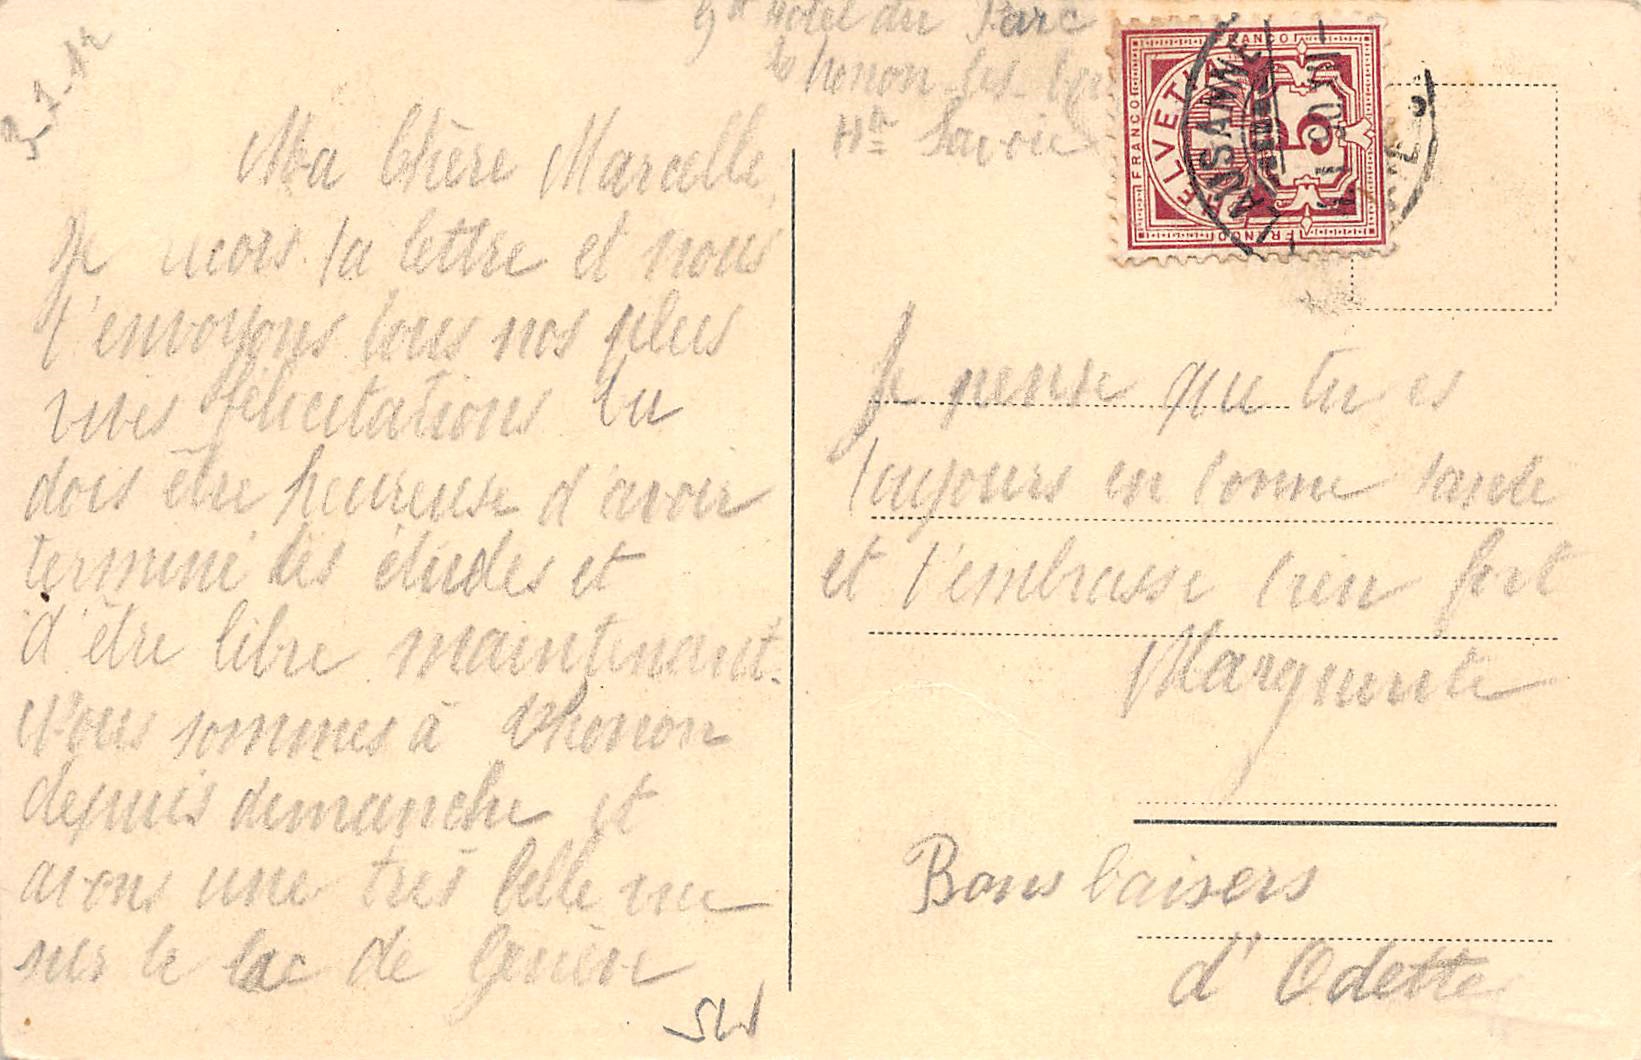 Gd Hotel du Parc
Thonon-les-
Hte Savoie
3-1-12
Ma Chère Marcelle
Je reçois ta lettre et nous
t'envoyons tous nos plus
vives félicitations tu
dois être heureuse d'avoir
terminé tes études et
d'être libre maintenant.
Nous sommes à Thonon
depuis dimanche et
avons une très belle vue
sur le lac de Genève
Je pense que tu es
toujours en bonne santé
et t'embrasse bien fort
Marguerite
Bons baisers
d'Odette
FRANCO
FRANCO
FRANCO
HELVETIA
5
LAUSANNE